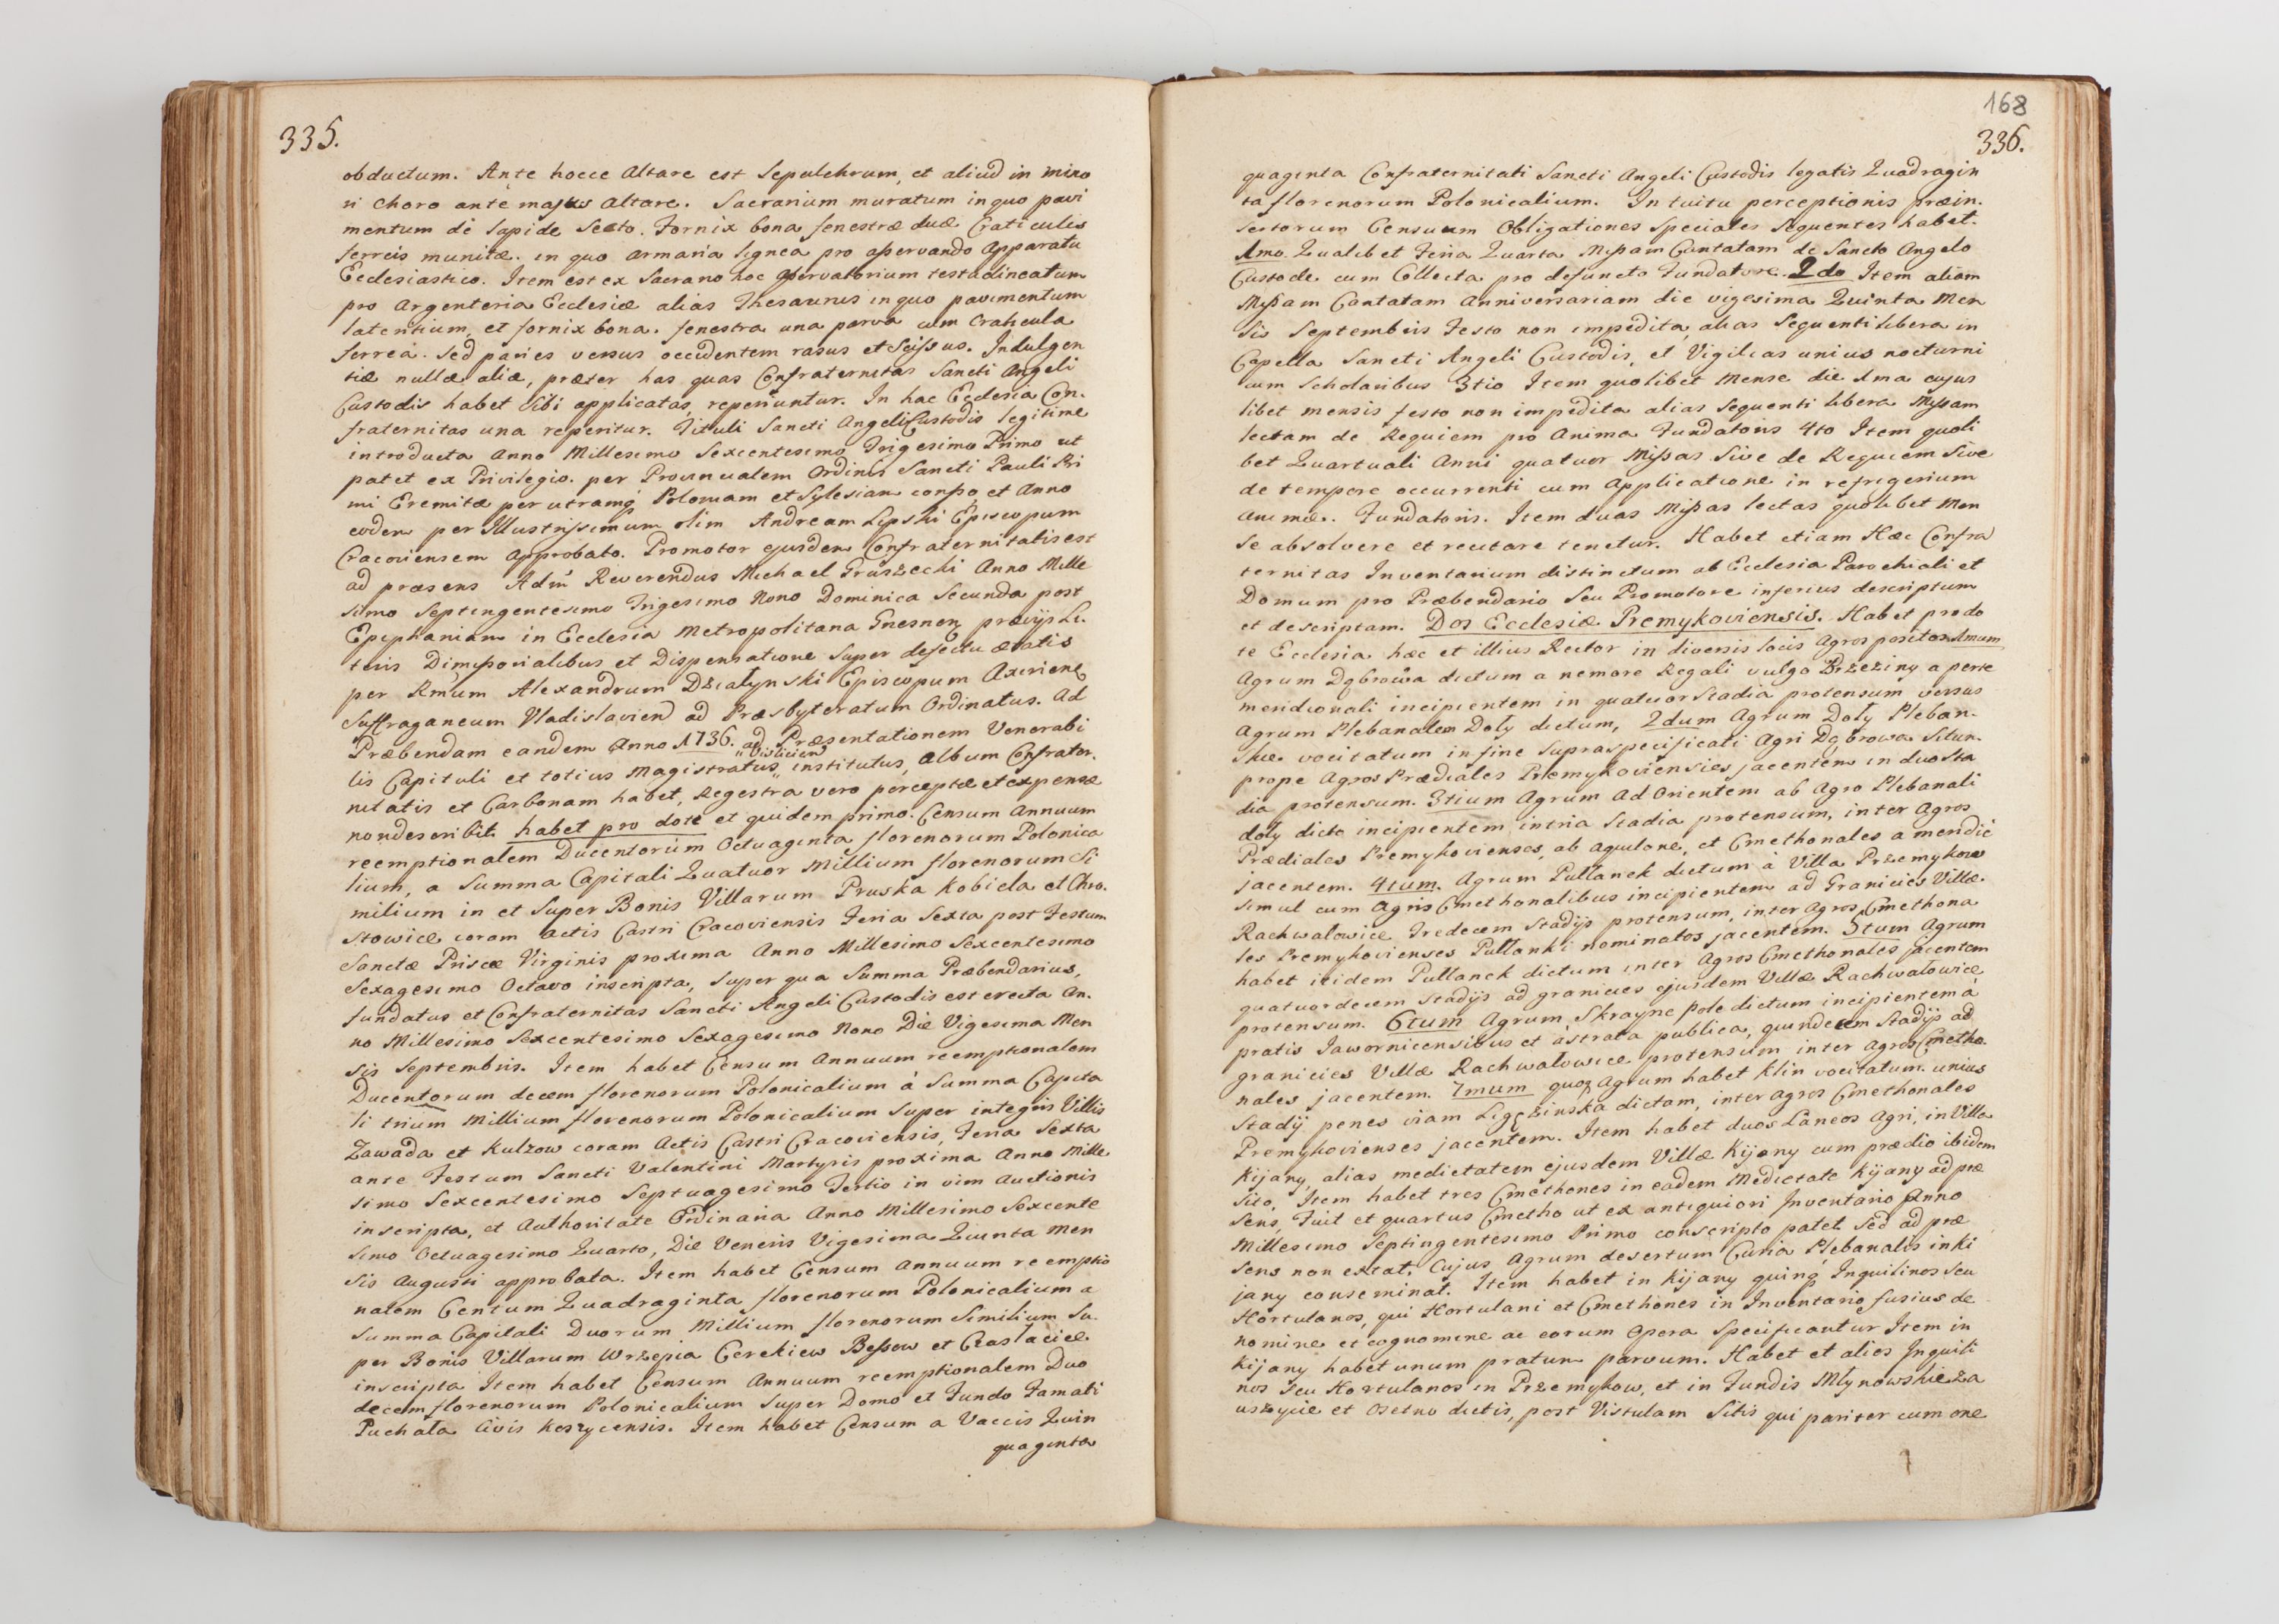 335.
obductum. Ante hocce Altare est Sepulchrum, et aliud in mino
ri Choro ante majus Altare. Sacrarium muratum in quo pavi
mentum de lapide Secto. Fornix bona fenestræ duæ Craticulis
ferreis munitæ. in quo armaria lignea pro asservando Apparatu
Ecclesiastico. Item est ex Sacrario hoc testudineatum
pro Argenteria Ecclesiæ alias Thesaurus in quo pavimentum
lateritium, et fornix bona. fenestra una parva cum Craticula
ferrea. Sed paries versus occidentem rasus et Scissus. Indulgen
tiæ nullæ aliæ, præter has quas Confraternitas Sancti Angeli
Custodis habet Sibi applicatas, reperiuntur. In hac Ecclesia Con-
fraternitas una reperitur. Tituli Sancti Angeli Custodis legitime
introducta Anno Millesimo Sexcentesimo Trigesimo Primo ut
patet ex Privilegio. per Provincialem Ordinis Sancti Pauli Pri
mi Eremitæ per utramq Poloniam et Sylesiam et Anno
eodem per Illustrissimum olim Andream Lipski Episcopum
Cracoviensem Approbato. Promotor ejusdem Confraternitatis est
ad præsens Adm Reverendus Michael Gruszecki Anno Mille
simo Septingentesimo Trigesimo Nono Dominica Secunda post
Epiphaniam in Ecclesia Metropolitana Gnesnen prævijs Li-
teris Dimissorialibus et Dispensatione Super defectu ætatis
per Rmum Alexandrum Działynski Episcopum
Suffraganeum Vladislavien ad Præsbyteratum Ordinatus. Ad
Præbendam eandem Anno 1736. ad Præsentationem Venerabi
lis Capituli et totius Magistratus Vislicien institutus, Album Confrater-
nitatis et Carbonam habet, Regestra vero perceptæ et expensæ
non describit. habet pro dote et quidem primo. Censum Annuum
reemptionalem Ducentorum Octuaginta florenorum Polonica
lium, a Summa Capitali Quatuor Millium florenorum Si
milium in et Super Bonis Villarum Pruska Kobiela et Chro-
stowice coram Actis Castri Cracoviensis Feria Sexta post Festum
Sanctæ Priscæ Virginis proxima Anno Millesimo Sexcentesimo
Sexagesimo Octavo inscripta, Super qua Summa Præbendarius,
fundatus et Confraternitas Sancti Angeli Custodis est erecta An-
no Millesimo Sexcentesimo Sexagesimo Nono Die Vigesima Men
sis Septembris. Item habet Censum Annuum reemptionalem
Ducentorum decem florenorum Polonicalium à Summa Capita
li trium Millium florenorum Polonicalium Super integris Villis
Zawada et Kulzow coram Actis Castri Cracoviensis, Feria Sexta
ante Festum Sancti Valentini Martyris proxima Anno Mille
simo Sexcentesimo Septuagesimo Tertio in vim auctionis
inscripta, et Authoritate Ordinaria Anno Millesimo Sexcente
simo Octuagesimo Quarto, Die Veneris Vigesima Quinta Men
sis Augusti approbata. Item habet Censum Annuum reemptio
nalem Centum Quadraginta florenorum Polonicalium a
Summa Capitali Duorum Millium florenorum Similium Su-
per Bonis Villarum Wrzepia Cerekiew Bessow et
inscripta Item habet Censum Annuum reemptionalem Duo
decem florenorum Polonicalium Super Domo et Fundo Famati
Puchała Civis Koszycensis. Item habet Censum a Vaccis Quin
quaginta
168
336.
quaginta Confraternitati Sancti Angeli Custodis legatis Quadragin
ta florenorum Polonicalium. In tuitu perceptionis præin-
sertorum Censuum Obligationes Speciales Sequentes habet.
1mo. Qualibet Feria Quarta Missam Cantatam de Sancto Angelo
Custode cum Collecta pro defuncto Fundatore. 2do Item aliam
Missam Cantatam Anniversariam die vigesima Quinta Men
sis Septembris Festo non impedita, alias Sequenti libera in
Capella Sancti Angeli Custodis, et Vigilias unius nocturni
cum Scholaribus 3tio Item quolibet Mense die 1ma cujus
libet mensis festo non impedita alias Sequenti libera Missam
lectam de Requiem pro Anima Fundatoris 4to Item quoli
bet Quartuali Anni quatuor Missas Sive de Requiem Sive
de tempore occurrenti cum Applicatione in refrigerium
animæ. Fundatoris. Item duas Missas lectas quolibet Men
se absolvere et recitare tenetur. Habet etiam Hæc Confra
ternitas Inventarium distinctum ab Ecclesia Parochiali et
Domum pro Præbendario Seu Promotore inferius descriptum
et descriptam. Dos Ecclesiæ Premykoviensis. Habet pro do
te Ecclesia hæc et illius Rector in diversis locis Agros positos. 1mum
Agrum Dąbrowa dictum a nemore Regali vulgo Brzeziny a parte
meridionali incipientem in quatuor Stadia protensum versus
Agrum Plebanalem Doły dictum, 2dum Agrum Doły Pleban-
skie vocitatum in fine Supraspecificati Agri Dąbrowa Situm.
prope Agros Prædiales Premykovienses jacentem in duo Sta
dia protensum. 3tium Agrum Ad Orientem ab Agro Plebanali
doły dicto incipientem, in tria Stadia protensum, inter Agros
Prædiales Premykovienses, ab aquilone, et Cmethonales a meridie
jacentem. 4tum. Agrum Pułłanek dictum à Villa Przemykow
simul cum Agris Cmethonalibus incipientem ad Granicies Villæ
Rachwałowice Tredecem Stadijs protensum, inter Agros Cmethona
les Premykovienses Pułłanki nominatos jacentem. 5tum Agrum
habet itidem Pułłanek dictum inter Agros Cmethonales jacentem
quatuordecem Stadijs ad granicies ejusdem Villæ Rachwałowice,
protensum. 6tum Agrum Skrayne pole dictum incipientem à
pratis Jawornicensibus et à strata publica, quindecem Stadijs ad
granicies Villæ Rachwałowice protensum inter Agros Cmetho-
nales jacentem. 7mum quoq Agrum habet Klin vocitatum. unius
Stadij penes viam Lęczinska dictam, inter Agros Cmethonales
Premykovienses jacentem. Item habet duos Laneos Agri, in Villa
Kijany, alias medietatem ejusdem Villæ Kijany cum prædio ibidem
Sito, Item habet tres Cmethones in eadem Medietate Kijany ad præ
sens, Fuit et quartus Cmetho ut ex antiquiori Inventario Anno
Millesimo Septingentesimo Primo conscripto patet, Sed ad præ
sens non extat, Cujus Agrum desertum Curia Plebanalis in Ki
jany conseminat. Item habet in Kijany quinq Inquilinos Seu
Hortulanos, qui Hortulani et Cmethones in Inventario fusius de
nomine et cognomine ac eorum Opera Specificantur Item in
Kijany habet unum pratum parvum. Habet et alios Inquili
nos seu Hortulanos in Przemykow, et in Fundis Młynowskie Za
uszycie et Osetno dictis, post Vistulam Sitis qui pariter cum one